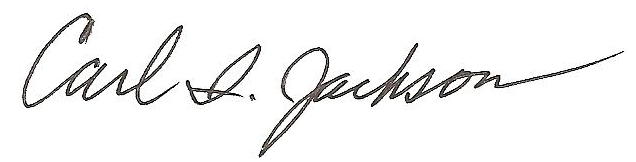 Carl S. Jackson